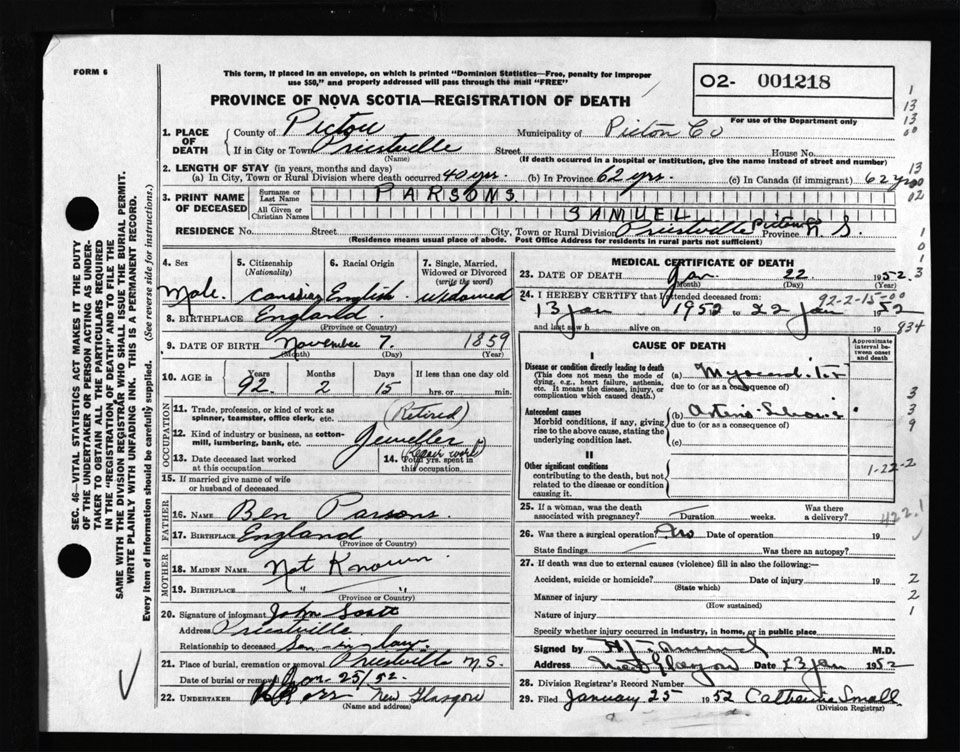 FORM 6
This form, if placed in an envelope, on which is printed "Dominion Statistics—Free, penalty for improper
use $50," and properly addressed will pass through the mail "FREE"
O2- 001218
For use of the Department only
PROVINCE OF NOVA SCOTIA—REGISTRATION OF DEATH
SEC. 46—VITAL STATISTICS ACT MAKES IT THE DUTY
OF THE UNDERTAKER OR PERSON ACTING AS UNDER-
TAKER TO OBTAIN ALL THE PARTICULARS REQUIRED
IN THE "REGISTRATION OF DEATH" AND TO FILE THE
SAME WITH THE DIVISION REGISTRAR WHO SHALL ISSUE THE BURIAL PERMIT.
WRITE PLAINLY WITH UNFADING INK. THIS IS A PERMANENT RECORD.
Every item of information should be carefully supplied. (See reverse side for instructions.)
1. PLACE OF DEATH County of Pictou Municipality of Pictou Co
If in City or Town Priestville Street House No.
(Name) (If death occurred in a hospital or institution, give the name instead of street and number)
2. LENGTH OF STAY (in years, months and days)
(a) In City, Town or Rural Division where death occurred 40 yrs. (b) In Province 62 yrs. (c) In Canada (if immigrant) 62 yrs
3. PRINT NAME OF DECEASED Surname or Last Name PARSONS
All Given or Christian Names SAMUEL
RESIDENCE No. Street City, Town or Rural Division Priestville Pictou Province N. S.
(Residence means usual place of abode. Post Office Address for residents in rural parts not sufficient)
4. Sex 5. Citizenship (Nationality) 6. Racial Origin 7. Single, Married, Widowed or Divorced (write the word)
Male. Canadian English. Widowed
8. BIRTHPLACE England
(Province or Country)
9. DATE OF BIRTH November 7. 1859
(Month) (Day) (Year)
10. AGE in Years Months Days If less than one day old
92. 2 15 hrs. or min.
OCCUPATION
11. Trade, profession, or kind of work as spinner, teamster, office clerk, etc. (Retired)
12. Kind of industry or business, as cotton-mill, lumbering, bank, etc. Jeweller
(Repair work)
13. Date deceased last worked at this occupation 14. Total yrs. spent in this occupation
15. If married give name of wife or husband of deceased
FATHER
16. NAME Ben Parsons.
17. BIRTHPLACE England
(Province or Country)
MOTHER
18. MAIDEN NAME Not Known
19. BIRTHPLACE " "
(Province or Country)
20. Signature of informant John Scott
Address Priestville
Relationship to deceased Son-in-law.
21. Place of burial, cremation or removal Priestville N.S.
Date of burial or removal Jan. 25/52.
22. UNDERTAKER Ross New Glasgow
(Name and address)
MEDICAL CERTIFICATE OF DEATH
23. DATE OF DEATH Jan. 22. 1952.
(Month) (Day) (Year)
92-2-15-00
24. I HEREBY CERTIFY that I attended deceased from:
13 Jan 1952 to 22 Jan 1952
and last saw h alive on 19
834
CAUSE OF DEATH
Approximate interval between onset and death
I
Disease or condition directly leading to death
(This does not mean the mode of dying, e.g., heart failure, asthenia, etc. It means the disease, injury, or complication which caused death.)
(a)
due to (or as a consequence of)
Antecedent causes
Morbid conditions, if any, giving rise to the above cause, stating the underlying condition last.
(b)
due to (or as a consequence of)
(c)
II
Other significant conditions
contributing to the death, but not related to the disease or condition causing it.
1-22-2
422.1
25. If a woman, was the death associated with pregnancy? Duration weeks. Was there a delivery?
26. Was there a surgical operation? No Date of operation 19
State findings Was there an autopsy?
27. If death was due to external causes (violence) fill in also the following:—
Accident, suicide or homicide? Date of injury 19
(State which)
Manner of injury
(How sustained)
Nature of injury
Specify whether injury occurred in industry, in home, or in public place
Signed by M.D.
Address New Glasgow Date 23 Jan 1952
28. Division Registrar's Record Number
29. Filed January 25 1952 Catherine Small
(Division Registrar)